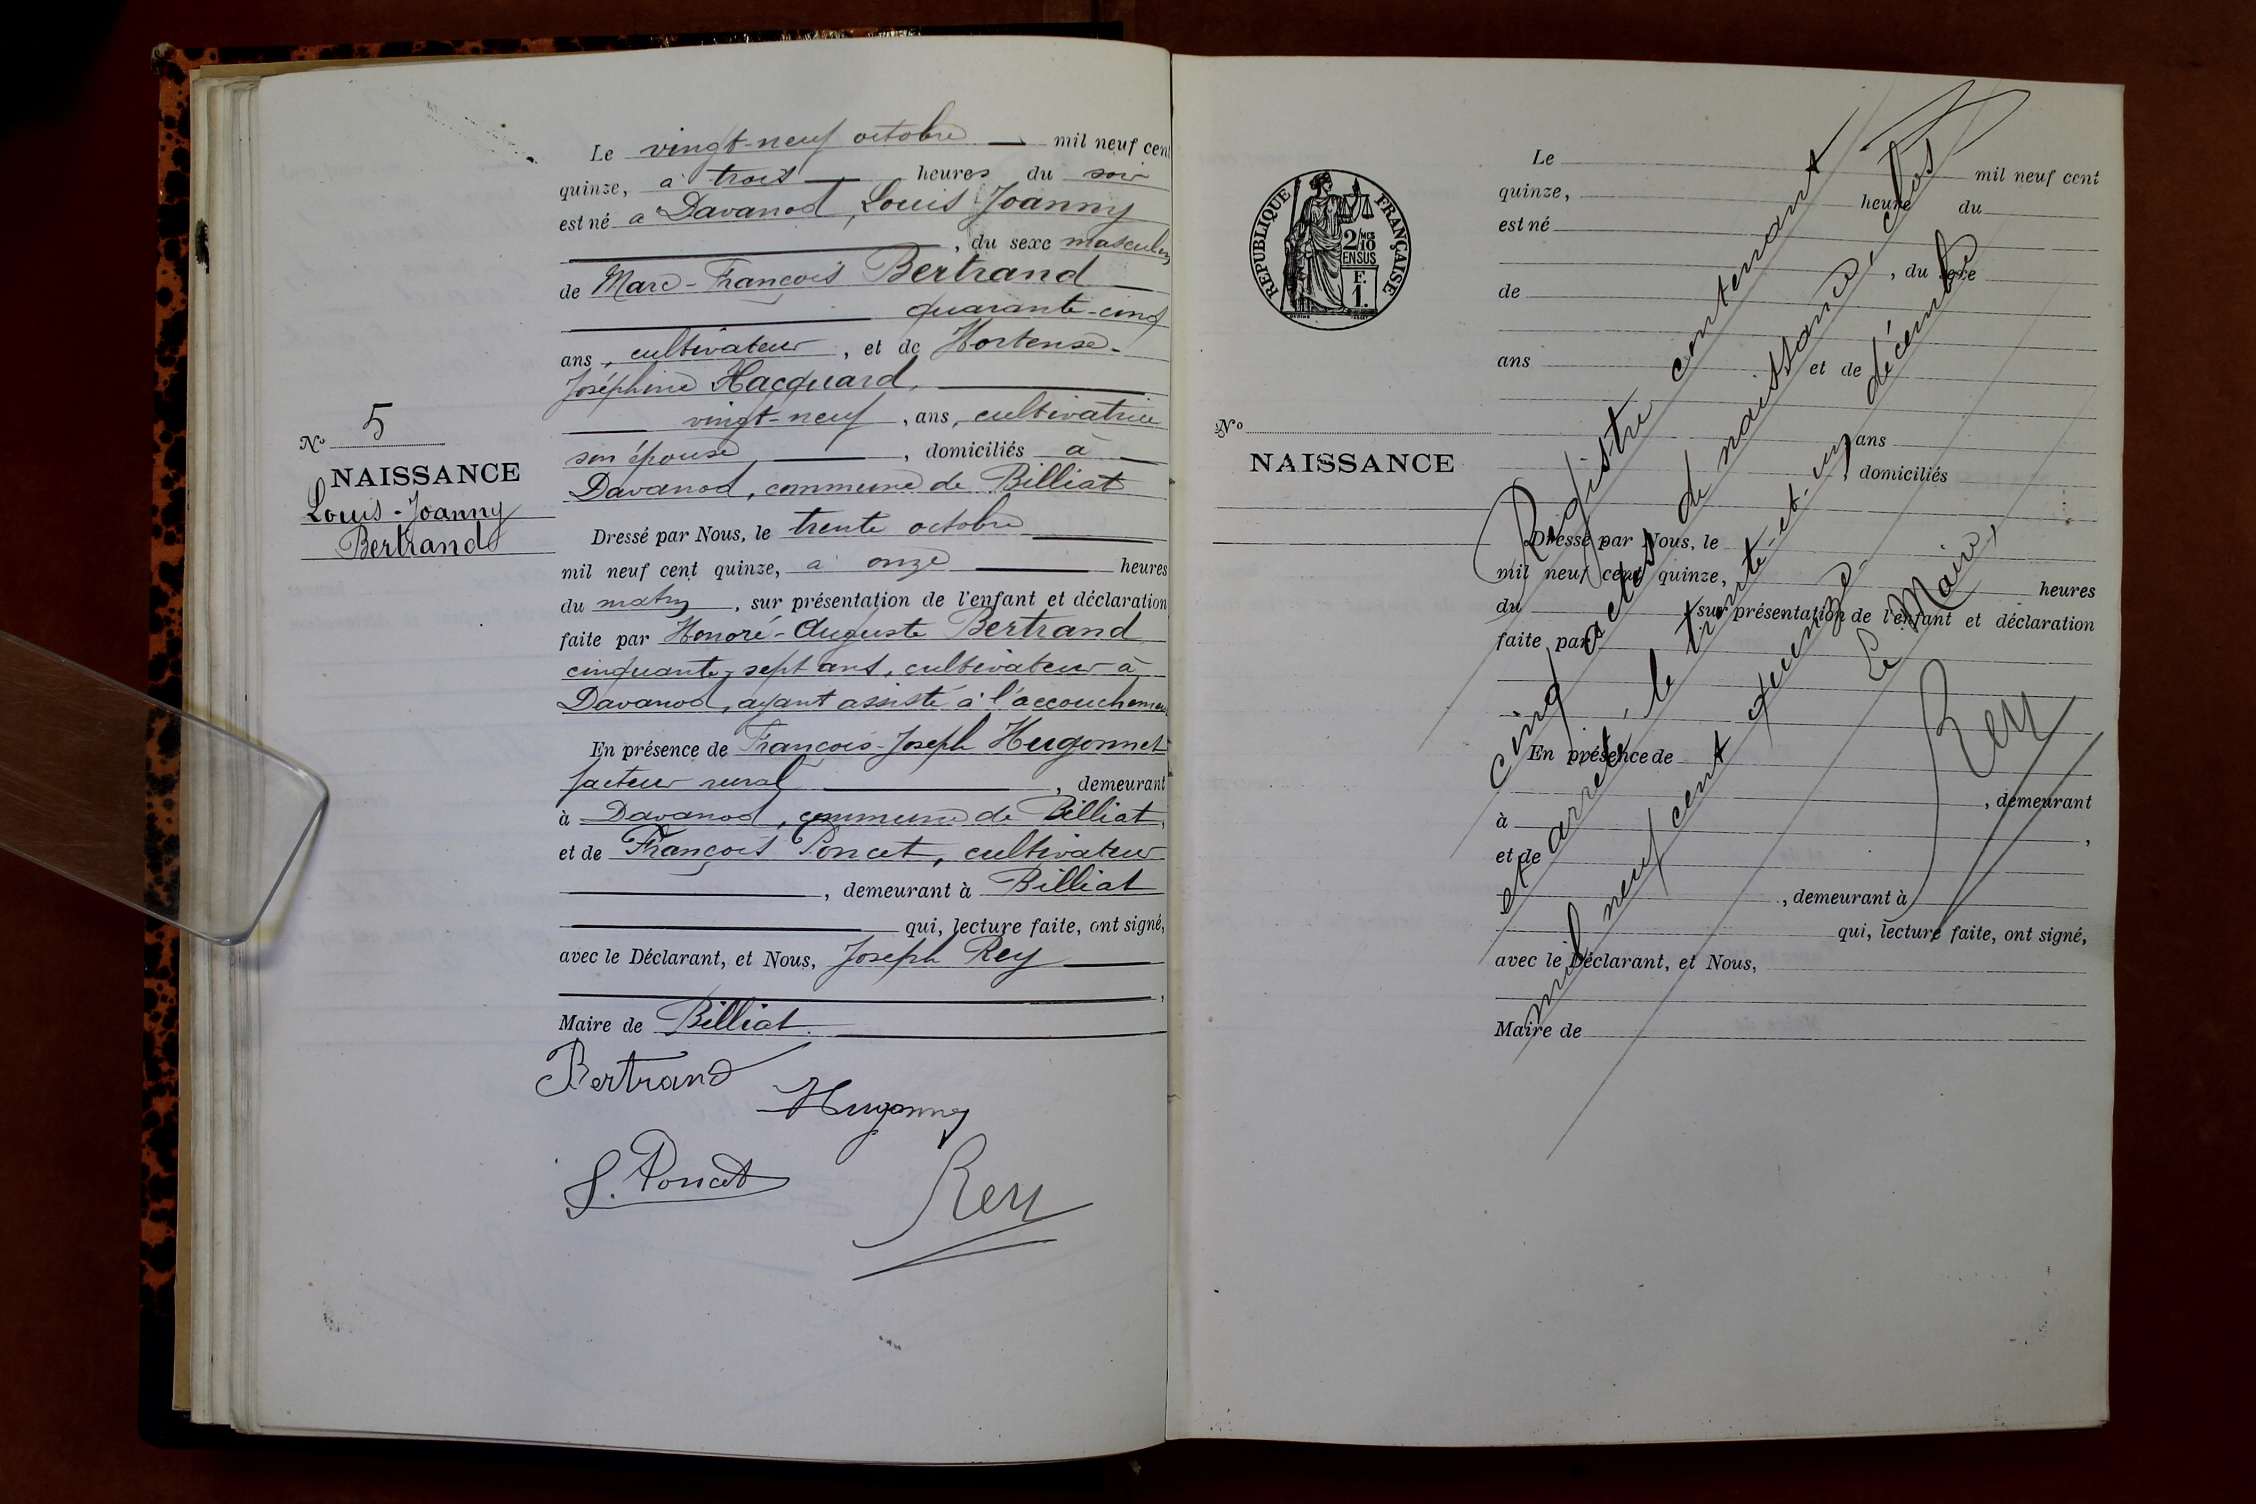 Le vingt-neuf octobre mil neuf cent
quinze, à trois heures du soir
est né à Davanod, Louis Joanny
, du sexe masculin
de Marc-François Bertrand
quarante-cinq
ans, cultivateur, et de Hortense-
Joséphine Hacquard,
vingt-neuf, ans, cultivatrice
son épouse, domiciliés à
Davanod, commune de Billiat
No 5
NAISSANCE
Louis-Joanny
Bertrand
Dressé par Nous, le trente octobre
mil neuf cent quinze, à onze heures
du matin, sur présentation de l'enfant et déclaration
faite par Honoré-Auguste Bertrand
cinquante-sept ans, cultivateur à
Davanod, ayant assisté à l'accouchement
En présence de François-Joseph Hugonnet
facteur rural, demeurant
à Davanod, commune de Billiat,
et de François Poncet, cultivateur
, demeurant à Billiat
qui, lecture faite, ont signé,
avec le Déclarant, et Nous, Joseph Rey
,
Maire de Billiat.
Bertrand
Hugonnet
F. Poncet
Rey
REPUBLIQUE FRANÇAISE
2/10 MES
EN SUS
F.
1.
No
NAISSANCE
Le mil neuf cent
quinze, heure du
est né
, du sexe
de
ans et de
, ans
, domiciliés
Dressé par Nous, le
mil neuf cent quinze, heures
du , sur présentation de l'enfant et déclaration
faite par
En présence de
, demeurant
à ,
et de
, demeurant à
qui, lecture faite, ont signé,
avec le Déclarant, et Nous,
Maire de
Registre contenant
cinq actes de naissance, clos
et arrêté, le trente-et-un décembre
mil neuf cent quinze.
Le Maire,
Rey